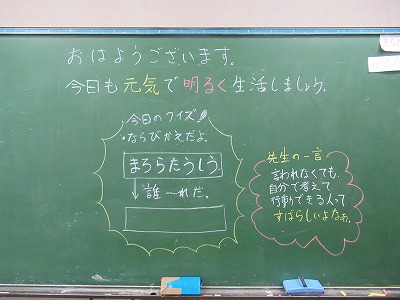 おはようございます。
今日も元気で明るく生活しましょう。
今日のクイズ
・ならびかえだよ。
まろらたうしう
誰〜れだ。
先生の一言
言われなくても、
自分で考えて
行動できる人って
すばらしいよなぁ。